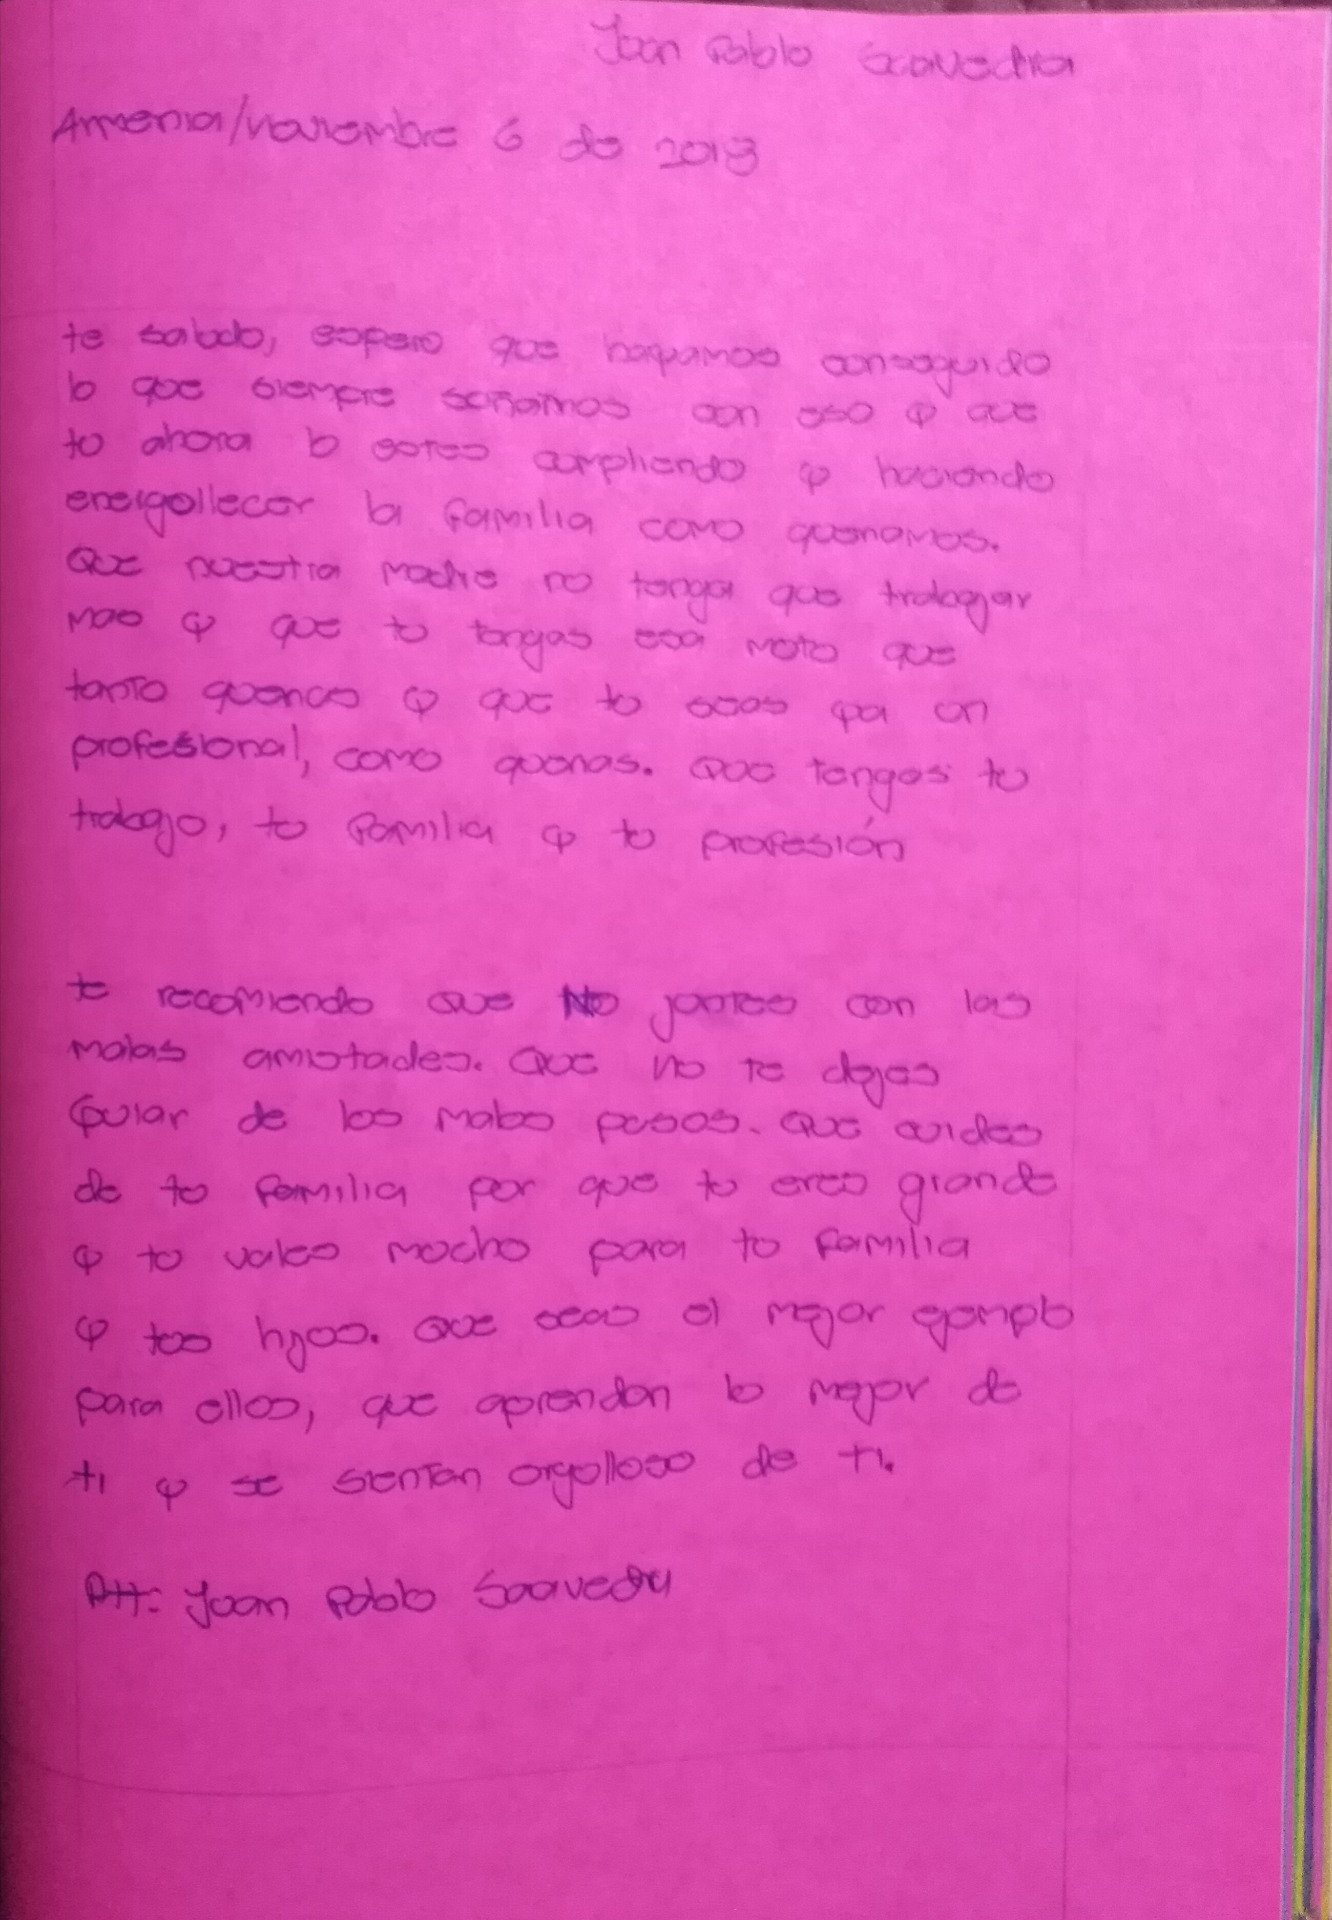 Joan Pablo Saavedra
Armenia/noviembre 6 de 2018
te saludo, espero que hayamos conseguido
lo que siempre soñamos con eso y que
tu ahora lo estes cumpliendo y haciendo
energollecer la familia como queriamos.
Que nuestra madre no tenga que trabajar
mas y que tu tengas esa moto que
tanto querias y que tu seas ya un
profesional, como querias. Que tengas tu
trabajo, tu familia y tu profesión
te recomiendo que No juntes con las
malas amistades. Que no te dejes
guiar de los malos pasos. Que cuides
de tu familia por que tu eres grande
y tu vales mucho para tu familia
y tus hijos. Que seas el mejor ejemplo
para ellos, que aprendan lo mejor de
ti y se sientan orgulloso de ti.
Att: Joan Pablo Saavedra